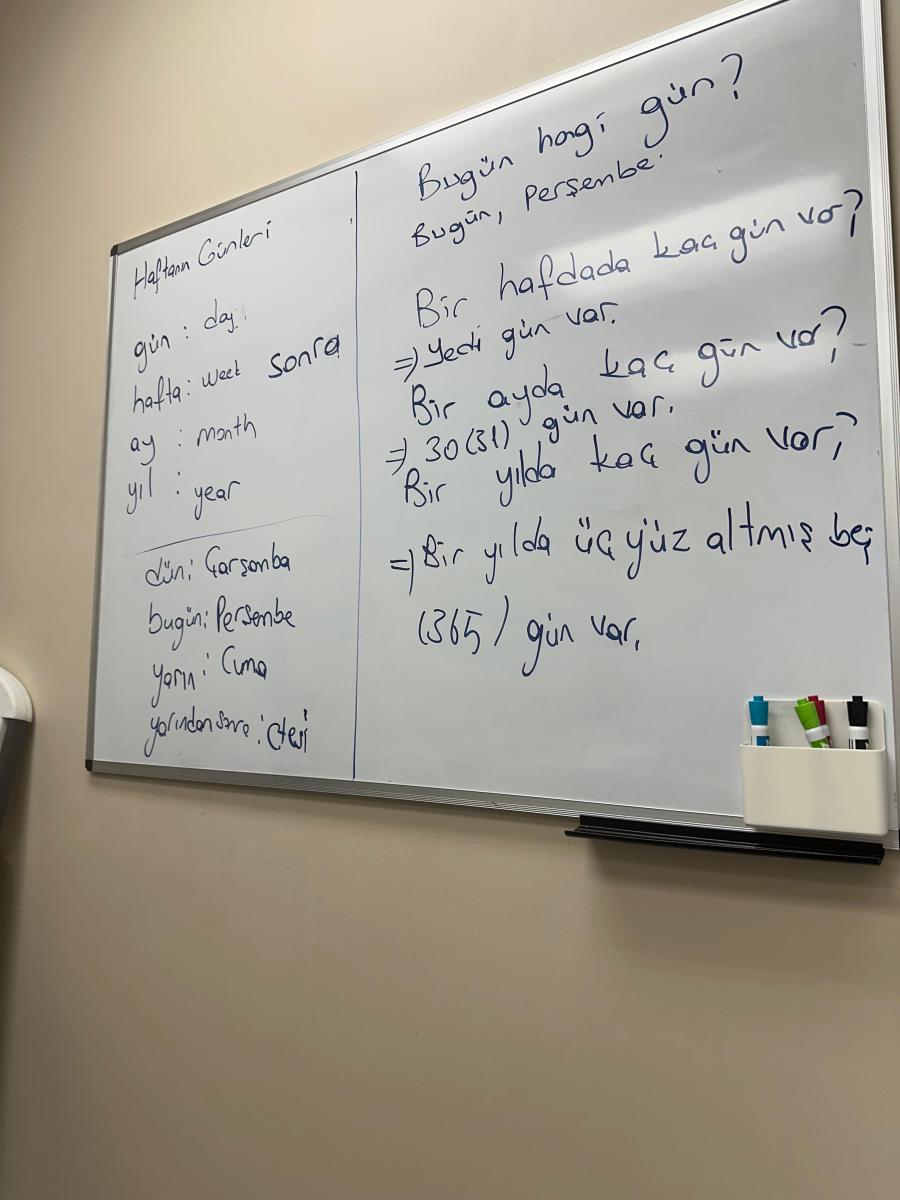 Haftanın Günleri
gün : day
hafta : week sonra
ay : month
yıl : year
dün : Çarşonba
bugün : Perşembe
yarın : Cuma
yarından sonra : Ctesi
Bugün hangi gün?
Bugün, Perşembe.
Bir hafdada kaç gün var?
=> Yedi gün var.
Bir ayda kaç gün var?
=> 30 (31) gün var.
Bir yılda kaç gün var?
=> Bir yılda üç yüz altmış beş
(365) gün var.